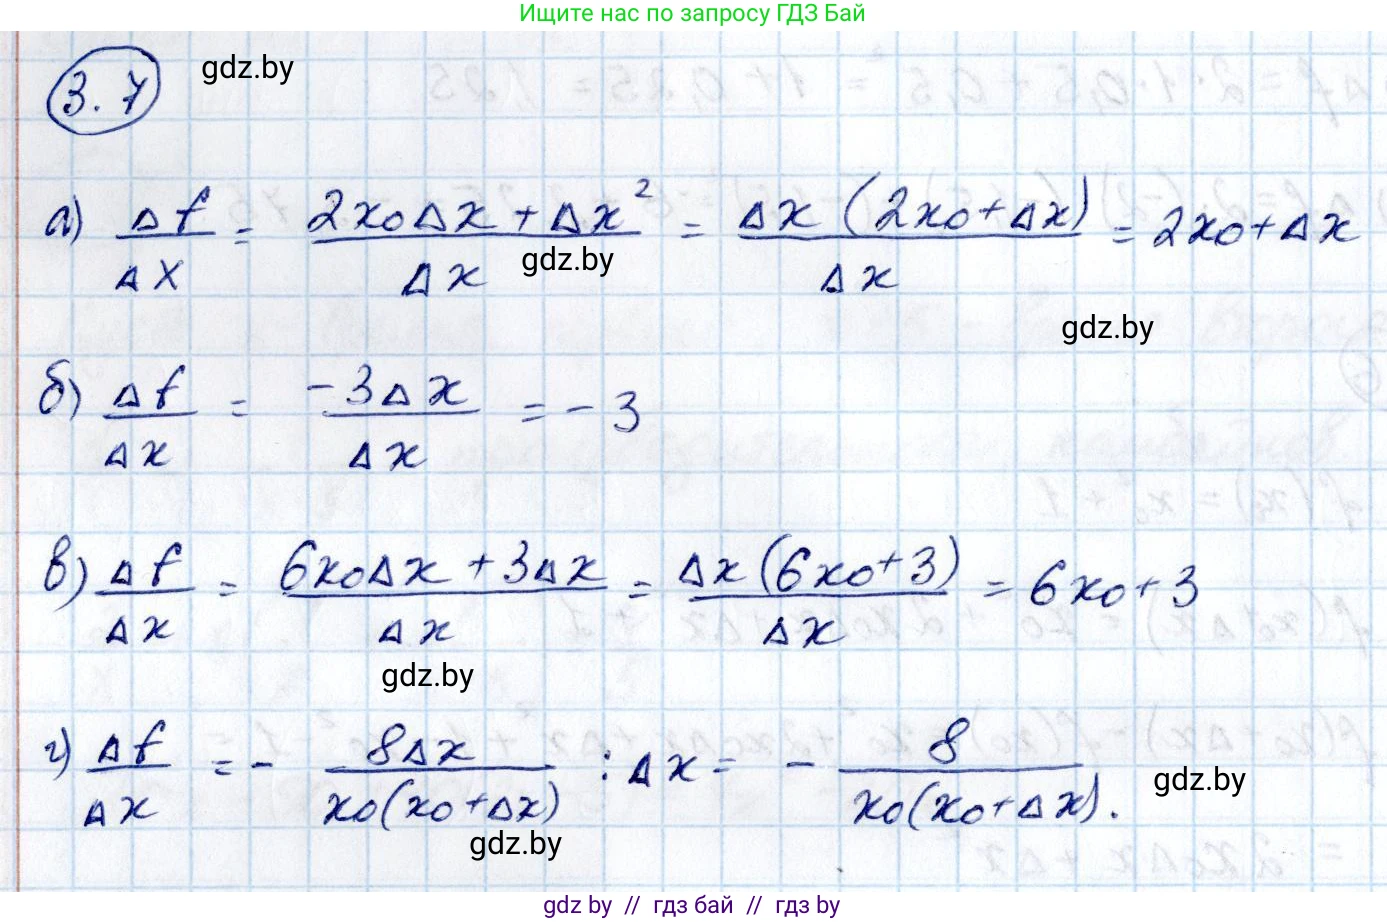 Ищите нас по запросу ГДЗ Бай
3.7 gdz.by
а) Δf/Δx = (2x₀Δx + Δx²)/Δx = Δx(2x₀ + Δx)/Δx = 2x₀ + Δx
gdz.by
gdz.by
б) Δf/Δx = -3Δx/Δx = -3
в) Δf/Δx = (6x₀Δx + 3Δx)/Δx = Δx(6x₀ + 3)/Δx = 6x₀ + 3
gdz.by
г) Δf/Δx = - 8Δx/(x₀(x₀ + Δx)) : Δx = - 8/(x₀(x₀ + Δx)).
gdz.by
gdz.by
gdz by // гдз бай // гдз by